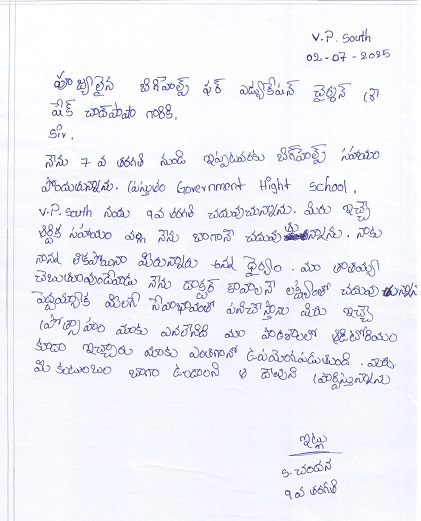 V.P. South
02-07-2025
పూజ్యులైన బిగ్‌హెల్ప్ ఫర్ ఎడ్యుకేషన్ చైర్మన్ శ్రీ
షేక్ చాంద్‌పాషా గారికి,
Sir,
నేను 7 వ తరగతి నుండి ఇప్పటివరకు బిగ్‌హెల్ప్ సహాయం
పొందుతున్నాను. ప్రస్తుతం Government Hight School,
V.P. South నందు 9వ తరగతి చదువుచున్నాను. మీరు ఇచ్చే
ఆర్థిక సహాయం వల్ల నేను బాగానే చదువుతున్నాను. నాకు
నాన్న లేకపోయినా మీరున్నారు అన్న ధైర్యం. మా తాతయ్య
చెబుతూవుండేవాడు నేను డాక్టర్ కావాలనే లక్ష్యంతో చదువుతున్నాను
పెద్దయ్యాక మీలాగే సేవాభావంతో పనిచేస్తాను మీరు ఇచ్చే
ప్రోత్సాహం మాకు ఎనలేనిది మా పాఠశాలలో ఆడిటోరియం
కూడా ఇచ్చారు మాకు ఎంతగానో ఉపయోగపడుతుంది. మీరు,
మీ కుటుంబం బాగా ఉండాలని ఆ దేవుని ప్రార్థిస్తున్నాను
ఇట్లు
S. చందన
9వ తరగతి